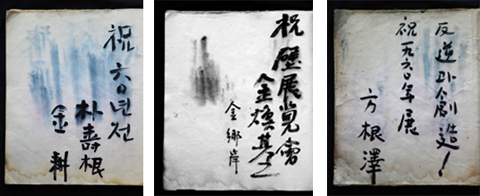 祝 六〇년전
朴壽根
金耕
祝 壁展覽會
金煥基
金鄕岸
反逆과 創造!
祝 一九六〇年 展
方根澤